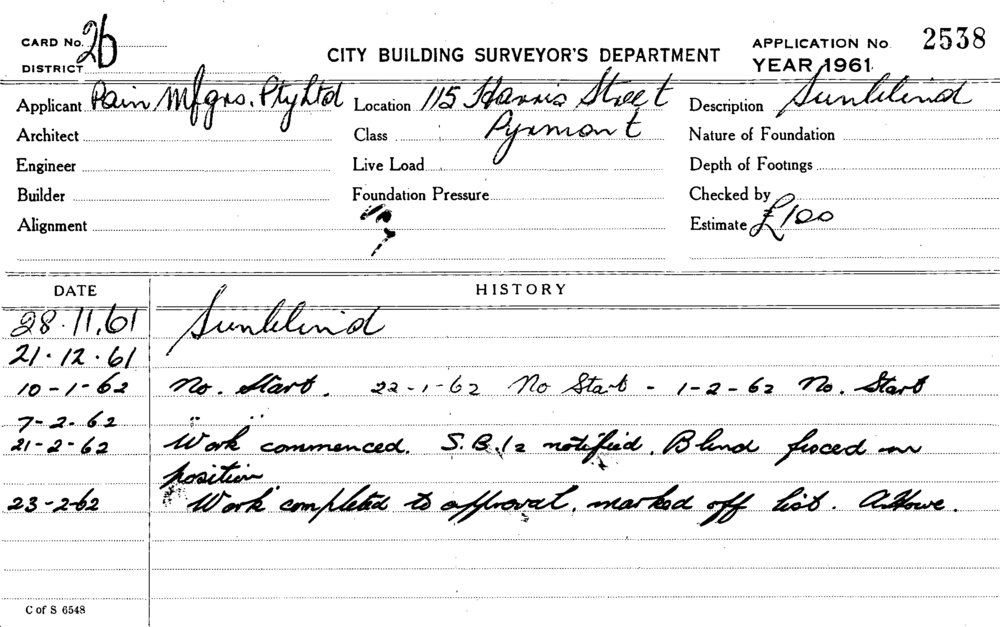 CARD No. 26
DISTRICT
CITY BUILDING SURVEYOR'S DEPARTMENT
APPLICATION No. 2538
YEAR 1961
Applicant Pain Mfgrs. Pty Ltd Location 115 Harris Street Description Sunblind
Architect Class Pyrmont Nature of Foundation
Engineer Live Load Depth of Footings
Builder Foundation Pressure Checked by
Alignment Estimate £100
DATE HISTORY
28.11.61 Sunblind
21.12.61
10-1-62 No. Start. 22-1-62 No Start - 1-2-62 No. Start
7-2-62 " "
21-2-62 Work commenced. notified. Blind fixed in
position
23-2-62 Work completed to approval, marked off list. A. Howe.
C of S 6548